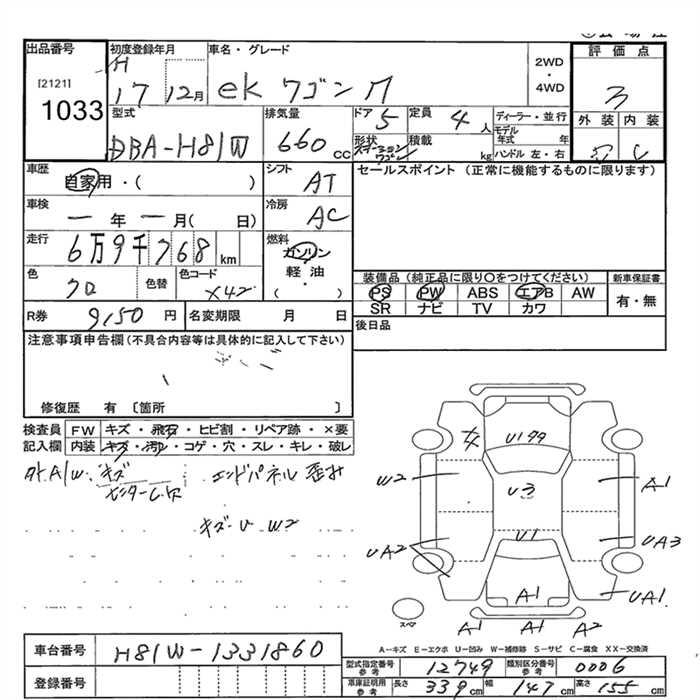 出品番号
[2121]
1033
初度登録年月
H
17 12月
車名・グレード
ek ワゴン M
2WD
・
4WD
評価点
3
外装 内装
C
型式
DBA-H81W
排気量
660 cc
ドア 5
定員 4 人
形状
ステーションワゴン
積載 kg
ディーラー・並行
モデル年式 年
ハンドル 左・右
車歴
自家用・( )
シフト
AT
セールスポイント (正常に機能するものに限ります)
車検
— 年 — 月( 日)
冷房
AC
走行
6万9千768 km
燃料
ガソリン
軽油
( ・ )
色
クロ
色替
色コード
X42
装備品 (純正品に限り○をつけてください)
PS PW ABS エアB AW
SR ナビ TV カワ
新車保証書
有・無
R券 9150 円
名変期限 月 日
後日品
注意事項申告欄(不具合内容等は具体的に記入して下さい)
修復歴 有 〔箇所 〕
検査員 FW キズ・飛石・ヒビ割・リペア跡・×要
記入欄 内装 キズ・汚れ・コゲ・穴・スレ・キレ・破レ
A/W キズ
エンドパネル 歪み
キズ-U W2
U199
U3
U1
W2
A1
UA2
UA3
UA1
A1
A1 A1 A2
スペア
A-キズ E-エクボ U-凹み W-補修跡 S-サビ C-腐食 XX-交換済
車台番号 H81W-1331860
登録番号
型式指定番号 参考 12749
類別区分番号 参考 0006
車庫証明用 参考 長さ 339 cm 幅 147 cm 高さ 155 cm